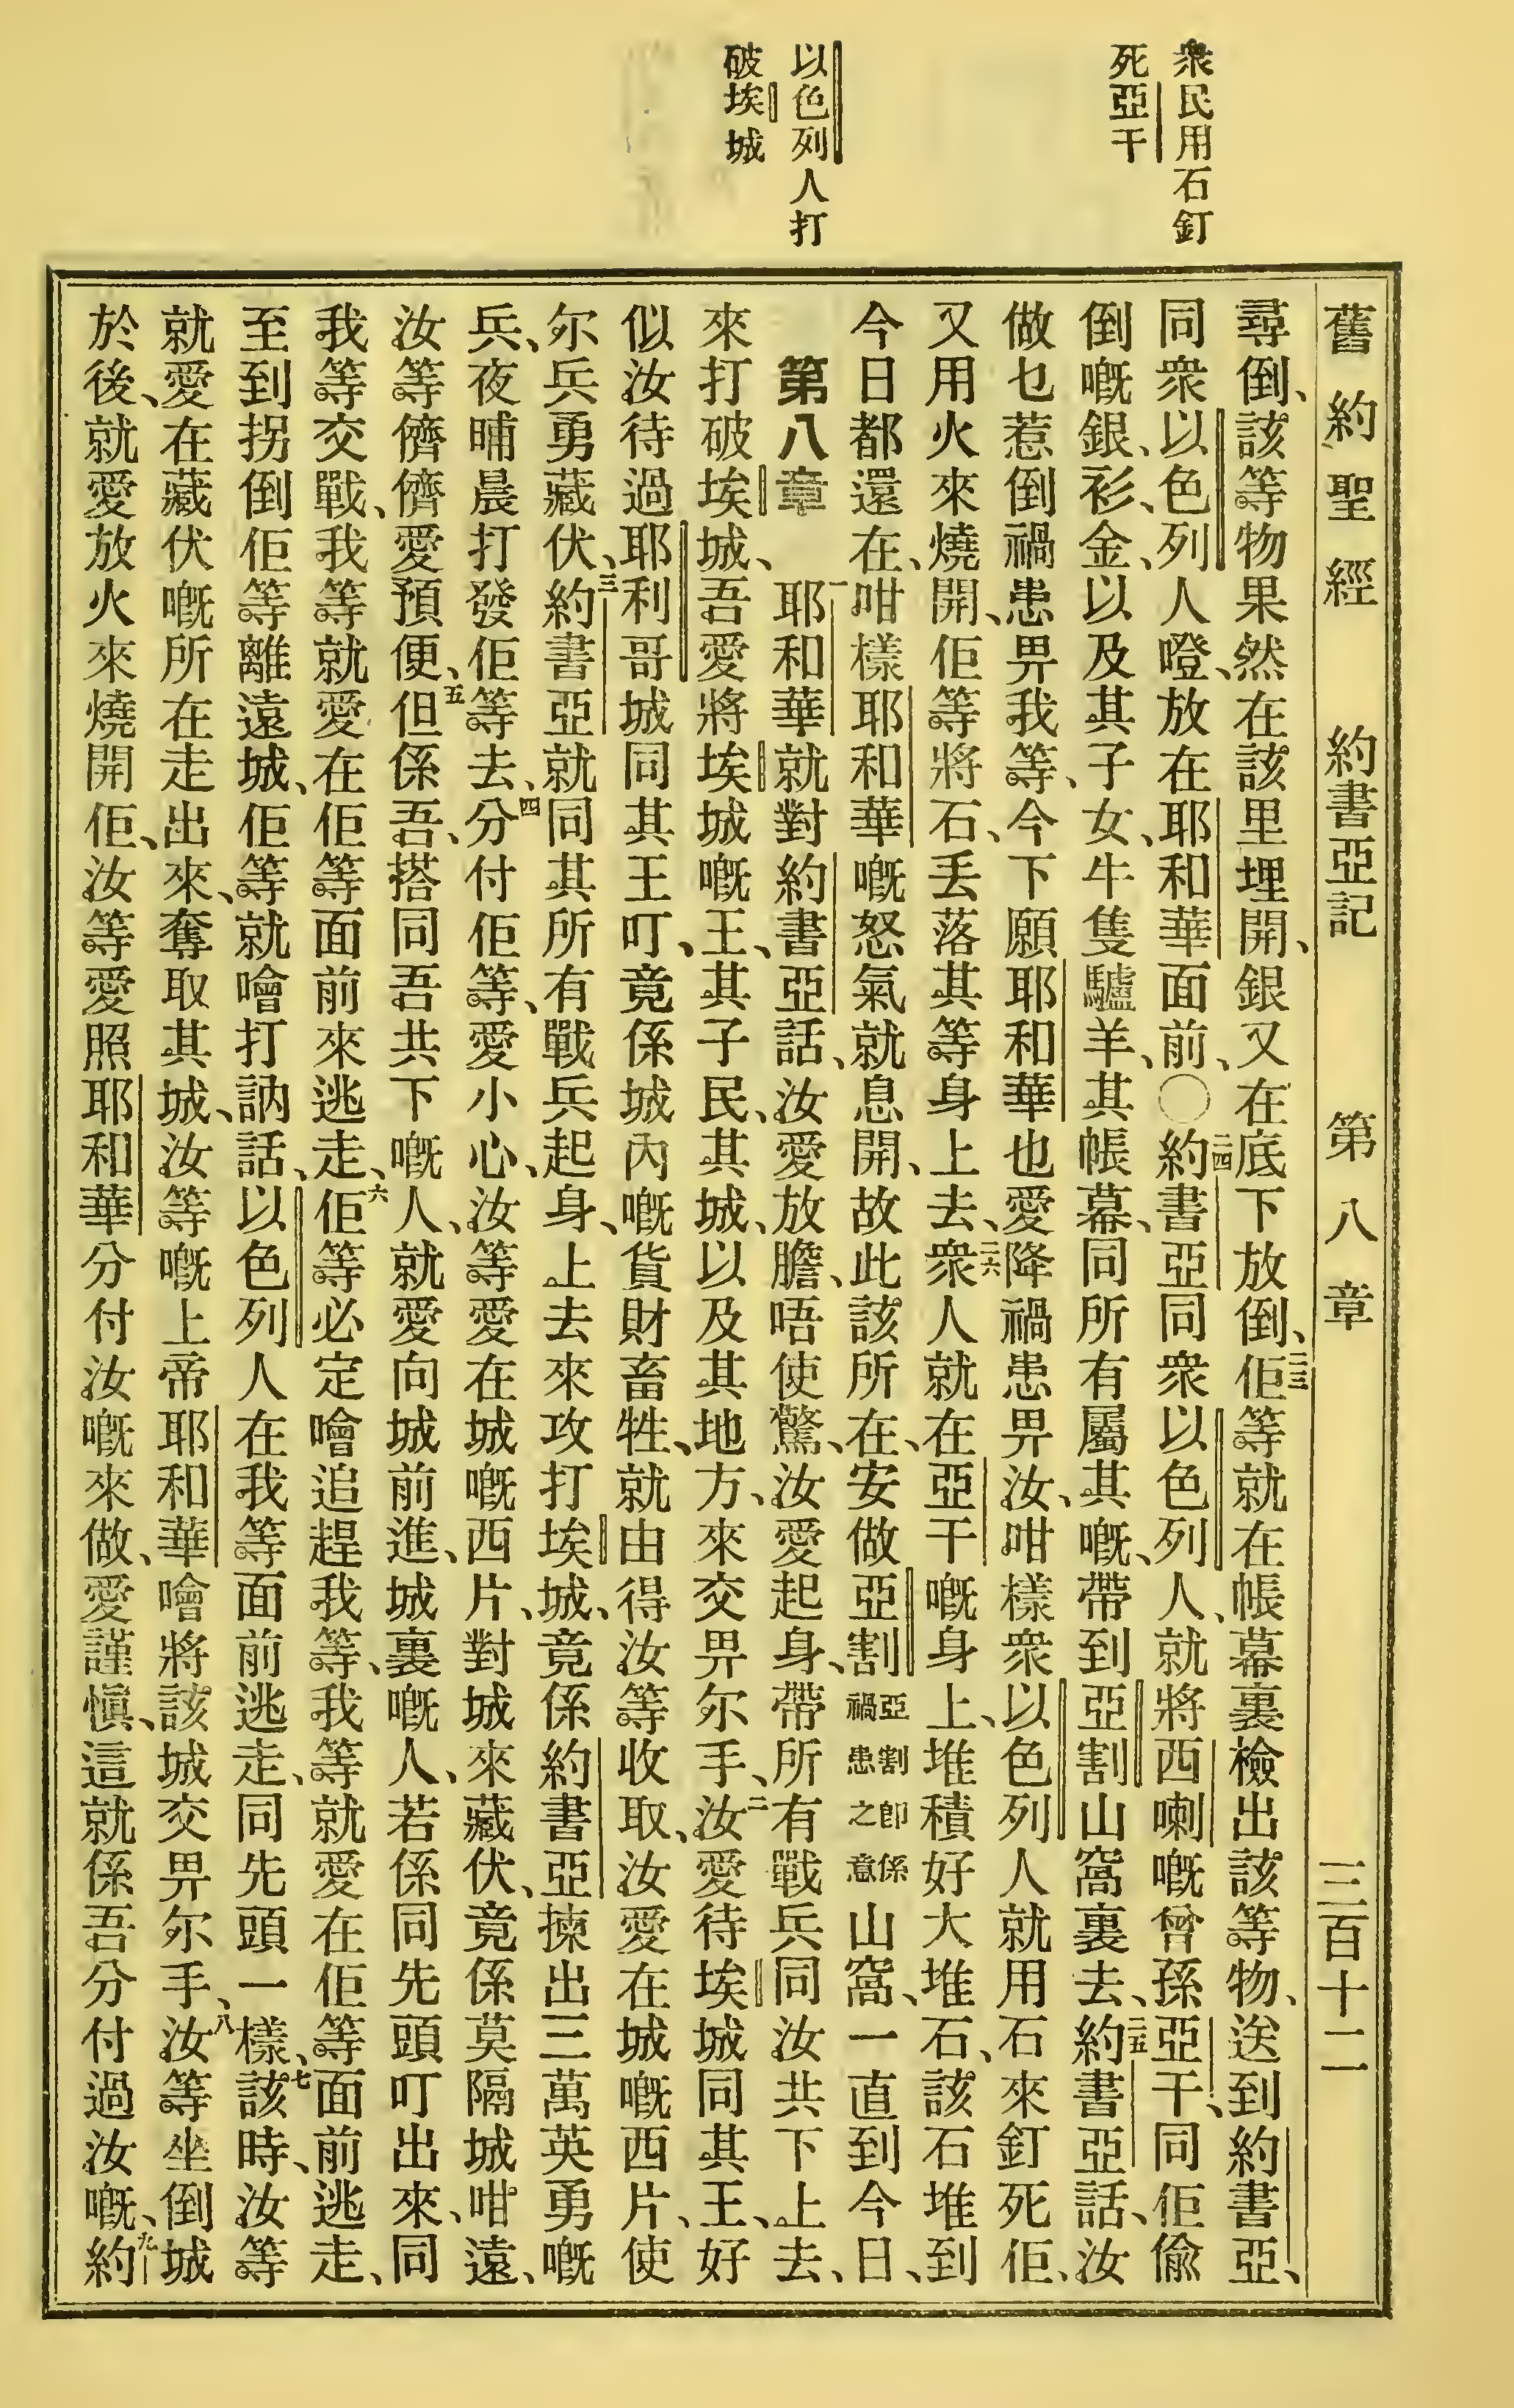 衆民用石釘
死亞干
以色列人打
破埃城
舊約聖經 約書亞記 第八章 三百十二
尋倒、該等物果然在該里埋開、銀又在底下放倒、二三佢等就在帳幕裏檢出該等物、送到約書亞、
同衆以色列人噔、放在耶和華面前、〇二四約書亞同衆以色列人、就將西喇嘅曾孫亞干、同佢偷
倒嘅銀、衫、金、以及其子女、牛隻驢羊、其帳幕、同所有屬其嘅、帶到亞割山窩裏去、二五約書亞話、汝
做乜惹倒禍患畀我等、今下願耶和華也愛降禍患畀汝、咁樣衆以色列人就用石來釘死佢、
又用火來燒開、佢等將石、丢落其等身上去、二六衆人就在亞干嘅身上、堆積好大堆石、該石堆到
今日都還在、咁樣耶和華嘅怒氣就息開、故此該所在、安做亞割亞割即係禍患之意山窩、一直到今日、
第八章 一耶和華就對約書亞話、汝愛放膽、唔使驚、汝愛起身、帶所有戰兵同汝共下上去、
來打破埃城、吾愛將埃城嘅王、其子民、其城、以及其地方、來交畀尔手、二汝愛待埃城同其王、好
似汝待過耶利哥城同其王叮、竟係城內嘅貨財畜牲、就由得汝等收取、汝愛在城嘅西片、使
尔兵勇藏伏、三約書亞就同其所有戰兵起身、上去來攻打埃城、竟係約書亞揀出三萬英勇嘅
兵、夜晡晨打發佢等去、四分付佢等、愛小心、汝等愛在城嘅西片、對城來藏伏、竟係莫隔城咁遠、
汝等儕儕愛預便、五但係吾、搭同吾共下嘅人、就愛向城前進、城裏嘅人、若係同先頭叮出來、同
我等交戰、我等就愛在佢等面前來逃走、六佢等必定噲追趕我等、我等就愛在佢等面前逃走、
至到拐倒佢等離遠城、佢等就噲打訥話、以色列人在我等面前逃走、同先頭一樣、七該時、汝等
就愛在藏伏嘅所在走出來、奪取其城、汝等嘅上帝耶和華噲將該城交畀尔手、八汝等坐倒城
於後、就愛放火來燒開佢、汝等愛照耶和華分付汝嘅來做、愛謹慎、這就係吾分付過汝嘅、九約